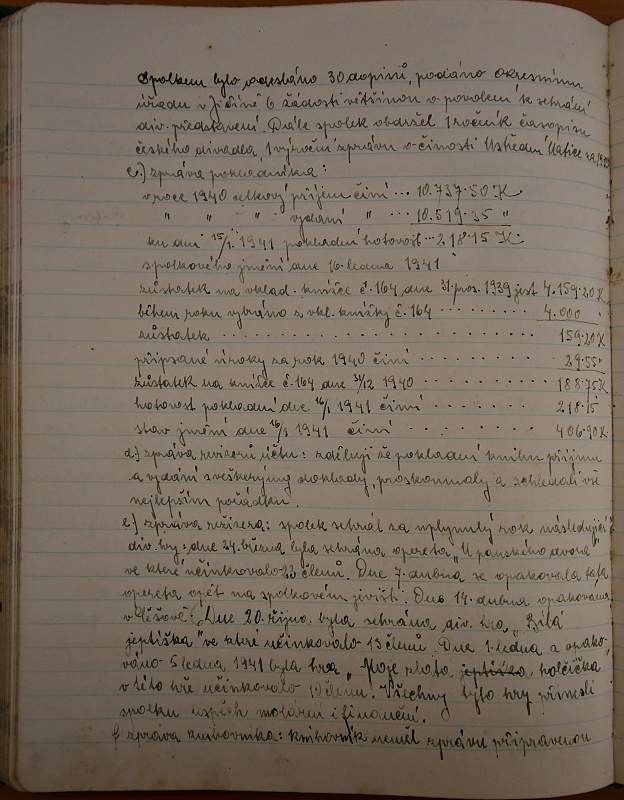 Spolkem bylo odesláno 30 dopisů, podáno okresnímu
úřadu v Jičíně 6 žádostí většinou o povolení k sehrání
div. představení. Dále spolek obdržel 1 ročník časopisu
českého divadla, 1 výroční zprávu o činosti Ústřední Matice za 1939
c.) zpráva pokladníka:
v roce 1940 celkový příjem činí ... 10.737·50 K
" " " vydání " ... 10.519·35 "
ku dni 15/1. 1941 pokladní hotovost ... 218·15 K
spolkového jmění dne 16. ledna 1941
zůstatek na vklad. knížce č. 164 dne 31. pros. 1939 jest 4.159·20 K
během roku vybráno z vkl. knížky č. 164 ........ 4.000 "
zůstatek .................... 159·20 K
připsané úroky za rok 1940 činí ........ 29·55"
zůstatek na knížce č. 164 dne 31/12 1940 ....... 188·75 K
hotovost pokladní dne 16/1 1941 činí ....... 218·15
stav jmění dne 16/1 1941 činí ........ 406·90 K.
d.) zpráva revizorů účtů: sdělují že pokladní knihu příjmu
a vydání s veškerými doklady, proskoumaly a schledali vše
nejlepším pořádku.
e.) zpráva režizera: spolek sehrál za uplynulý rok následující
div. hry: dne 24. března byla sehrána opereta „U panského dvora"
ve které učinkovalo 23 členů. Dne 7. dubna se opakovala tato
opereta opět na spolkovém jevišti. Dne 14. dubna opakována
v Dne 20. října byla sehrána div. hra „Bílá
jeptiška" ve které učinkovalo 13 členů. Dne 1. ledna a opako-
váno 5 ledna 1941 byla hra „Moje zlatá jeptiška holčička"
v této hře učinkovalo členů. Všechny tyto hry přinesli
spolku úspěch morální i finanční.
f zpráva knihovníka: knihovník neměl zprávu připravenou